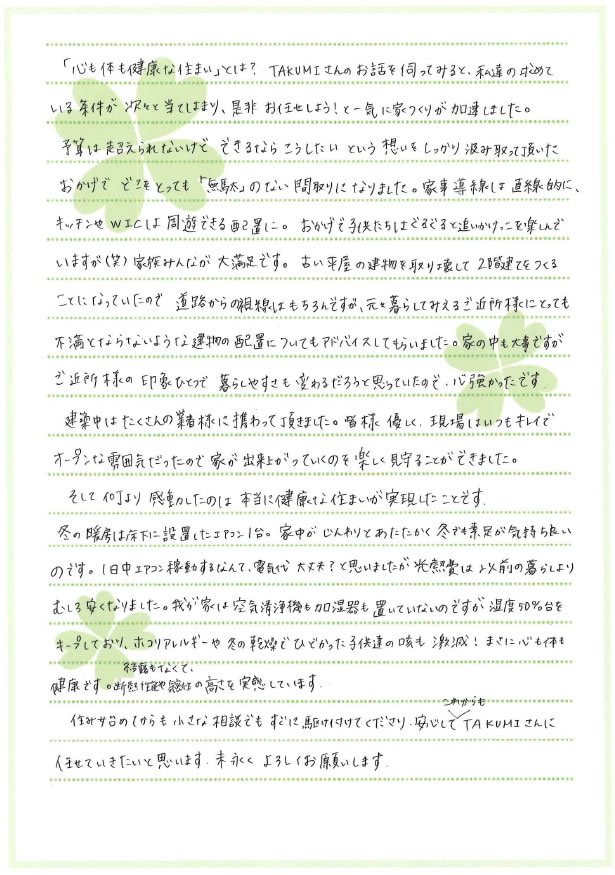 「心も体も健康な住まい」とは? TAKUMIさんのお話を伺ってみると、私達の求めて
いる条件が次々と当てはまり、是非お任せしよう!と一気に家づくりが加速しました。
予算は超えられないけどできるならこうしたいという想いをしっかり汲み取って頂いた
おかげでどこをとっても「無駄」のない間取りになりました。家事導線は直線的に、
キッチンやWICは周遊できる配置に。おかげで子供たちはぐるぐると追いかけっこを楽しんで
いますが(笑)家族みんなが大満足です。古い平屋の建物を取り壊して2階建てをつくる
ことになっていたので道路からの視線はもちろんですが、元々暮らしてみえるご近所様にとっても
不満とならないような建物の配置についてもアドバイスしてもらいました。家の中も大事ですが
ご近所様の印象ひとつで暮らしやすさも変わるだろうと思っていたので、心強かったです。
建築中はたくさんの業者様に携わって頂きました。皆様優しく、現場はいつもキレイで
オープンな雰囲気だったので家が出来上がっていくのを楽しく見守ることができました。
そして何より感動したのは本当に健康な住まいが実現したことです。
冬の暖房は床下に設置したエアコン1台。家中がじんわりとあたたかく冬でも素足が気持ち良い
のです。1日中エアコン稼動するなんて、電気代大丈夫?と思いましたが光熱費は以前の暮らしより
むしろ安くなりました。我が家は空気清浄機も加湿器も置いていないのですが湿度50%台を
キープしており、ホコリアレルギーや冬の乾燥でひどかった子供達の咳も激減!まさに心も体も
結露もなくて、
健康です。断熱性能や気密性の高さを実感しています。
これからも
住み始めてからも小さな相談でもすぐに駆け付けてくださり、安心してTAKUMIさんに
任せていきたいと思います。末永くよろしくお願いします。